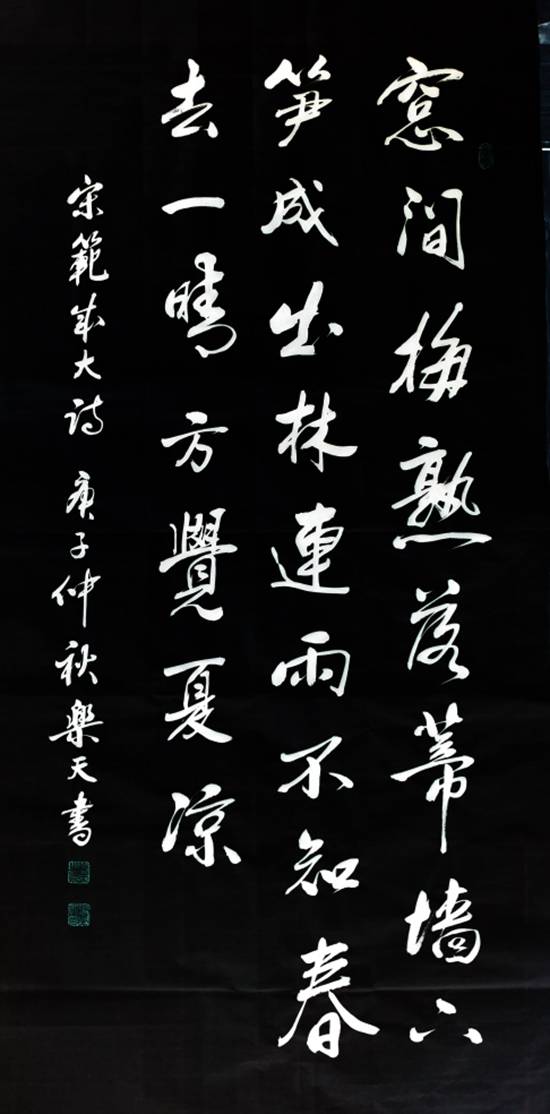 窓间梅熟落蒂墙下
笋成出林連雨不知春
去一晴方覺夏凉
宋範成大诗 庚子仲秋樂天書